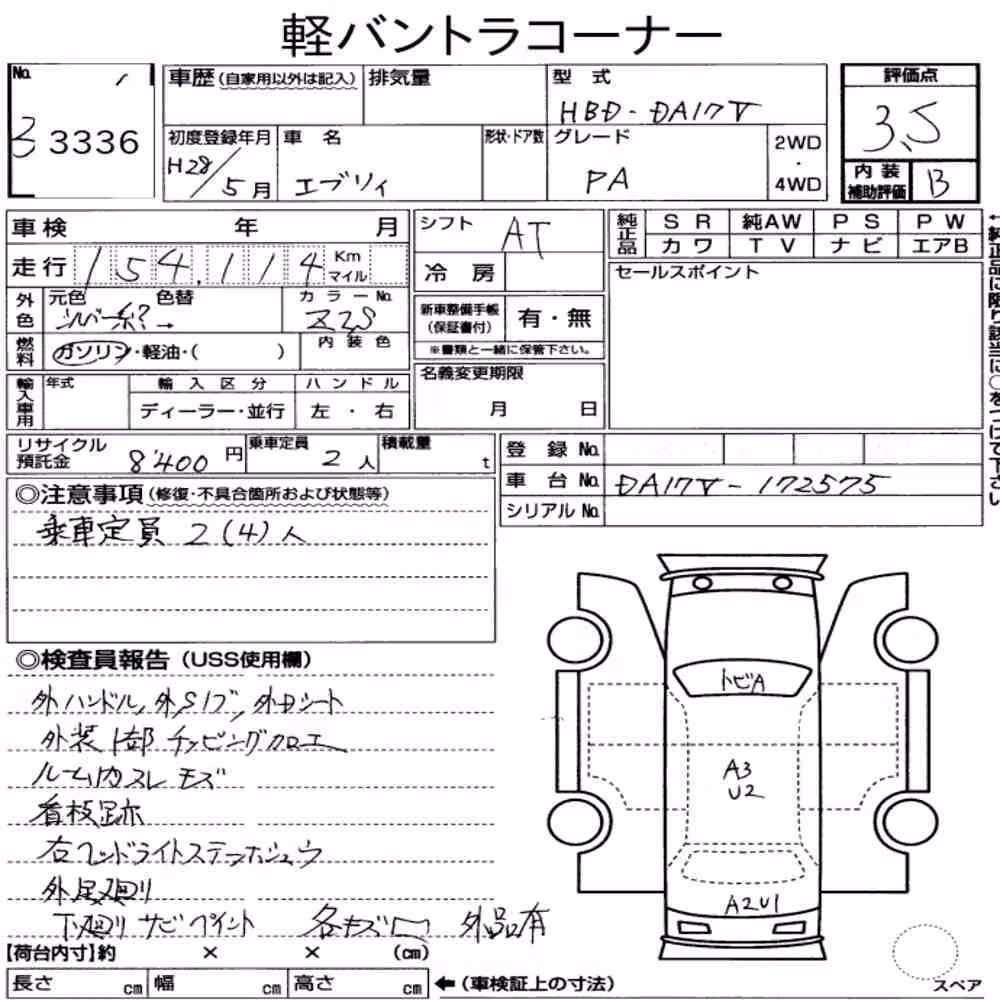 軽バントラコーナー
No. 3 3336
車歴 (自家用以外は記入) 排気量 型 式 HBD-DA17V 評価点 3.5
初度登録年月 H28/5月 車 名 エブリィ 形状・ドア数 グレード PA 2WD・4WD 内 装 補助評価 B
車検 年 月 シフト AT 純正品 ＳＲ 純AW ＰＳ ＰＷ
カワ ＴＶ ナビ エアB
走行 154,114 Km マイル 冷 房 セールスポイント
外色 元色 色替 シルバー系?→ カラーNo. Z2S 新車整備手帳 (保証書付) 有・無
※書類と一緒に保管下さい。
燃料 ガソリン・軽油・( ) 内 装 色
輸入車用 年式 輸 入 区 分 ハ ン ド ル 名義変更期限
ディーラー・並行 左 ・ 右 月 日
リサイクル預託金 8400 円 乗車定員 2 人 積載量 t 登 録 No.
車 台 No. DA17V-172575
シリアル No.
←純正品に限り該当に○をつけて下さい
◎注意事項 (修復・不具合箇所および状態等)
乗車定員 2 (4) 人
◎検査員報告 (USS使用欄)
外ハンドル,
外装1部 チッピングクロエ
ルーム内スレ キズ
看板跡
右ヘッドライトステーホシュウ
外足廻り
下廻り サビ ペイント 各キズ 外品有
トビA
A3
U2
A2U1
【荷台内寸】約 × × (cm)
長さ cm 幅 cm 高さ cm ←(車検証上の寸法)
スペア